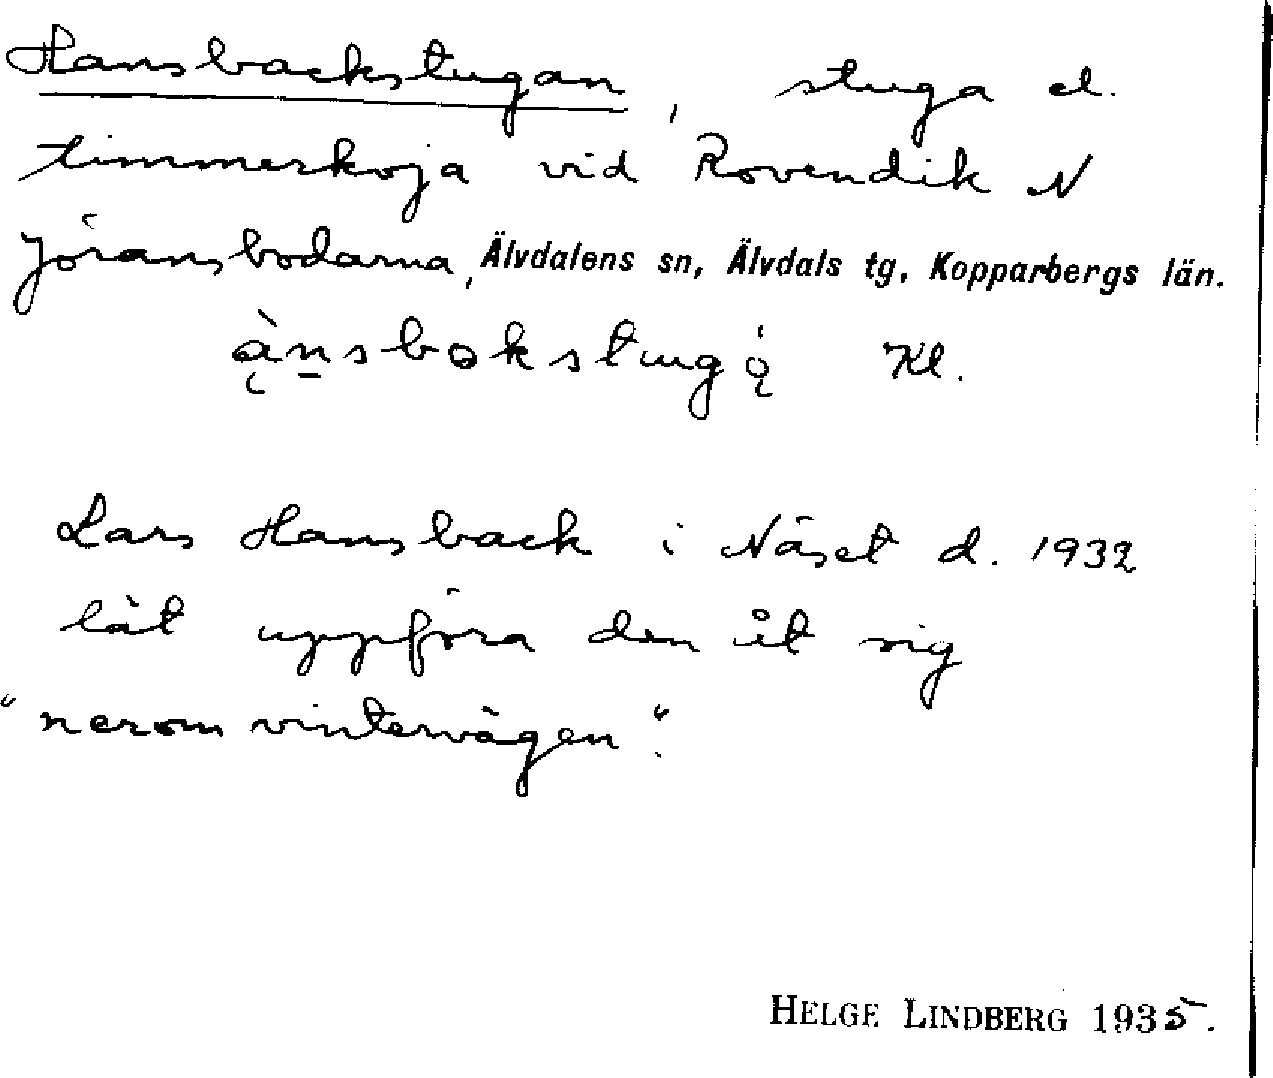 Hansbackstugan, stuga el.
timmerkoja vid Rovendik N
Jöransbodarna, Älvdalens sn, Älvdals tg, Kopparbergs län.
Kl.
Lars Hansback i Näset d. 1932
lät uppföra den åt sig
"nerom vintervägen".
HELGE LINDBERG 1935.